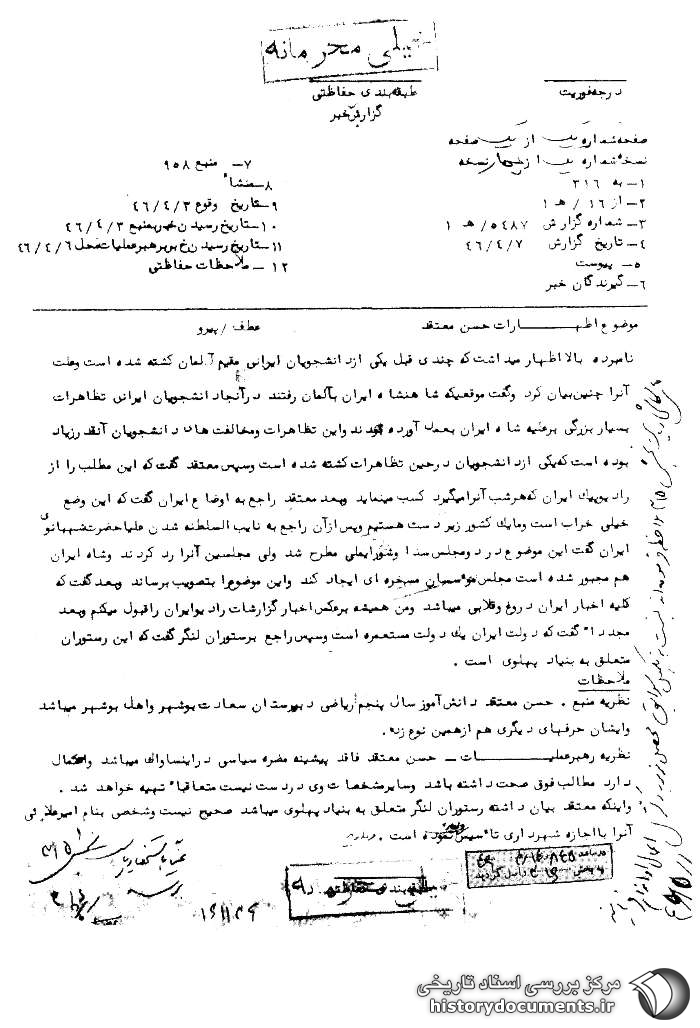 خیلی محرمانه
درجه فوریت
طبقه بندی حفاظتی
گزارش خبر
صفحه شماره یک از یک صفحه
نسخه شماره یک از چهار نسخه
۱- به ۳۱۶
۲- از ۱۶ / هـ ۱
۳- شماره گزارش ۵۴۸۷ / هـ ۱
۴- تاریخ گزارش ۴۶/۴/۷
۵- پیوست
۶- گیرندگان خبر
۷- منبع ۹۵۸
۸- منشاء
۹- تاریخ وقوع ۴۶/۴/۳
۱۰- تاریخ رسیدن خبر بمنبع ۴۶/۴/۳
۱۱- تاریخ رسیدن خبر برهبر عملیات محل ۴۶/۴/۶
۱۲- ملاحظات حفاظتی
موضوع اظهارات حسن معتقد عطف / پیرو
نامبرده بالا اظهار میداشت که چندی قبل یکی از دانشجویان ایرانی مقیم آلمان کشته شده است وعلت
آنرا چنین بیان کرد وگفت موقعیکه شاهنشاه ایران بآلمان رفتند در آنجا دانشجویان ایرانی تظاهرات
بسیار بزرگی برعلیه شاه ایران بعمل آورده بودند واین تظاهرات ومخالفت های دانشجویان آنقدر زیاد
بوده است که یکی از دانشجویان در حین تظاهرات کشته شده است وسپس معتقد گفت که این مطلب را از
رادیو پیک ایران که هر شب آنرا میگیرد کسب مینماید وبعد معتقد راجع به اوضاع ایران گفت که این وضع
خیلی خراب است ومایک کشور زیر دست هستیم وپس از آن راجع به نایب السلطنه شدن علیا حضرت شهبانوی
ایران گفت این موضوع در دو مجلس سنا وشورایملی مطرح شد ولی مجلسین آنرا رد کردند وشاه ایران
هم مجبور شده است مجلس موسسان مسخره ای ایجاد کند واین موضوع را بتصویب برساند وبعد گفت که
کلیه اخبار ایران دروغ وقلابی میباشد ومن همیشه برعکس اخبار گزارشات رادیو ایران را قبول میکنم وبعد
مجددا" گفت که دولت ایران یک دولت مستعمره است وسپس راجع برستوران لنگر گفت که این رستوران
متعلق به بنیاد پهلوی است .
ملاحظات
نظریه منبع . حسن معتقد دانش آموز سال پنجم ریاضی دبیرستان سعادت بوشهر واهل بوشهر میباشد
وایشان حرفهای دیگری هم از همین نوع زد .
نظریه رهبر عملیات - حسن معتقد فاقد پیشینه مضره سیاسی در اینساواک میباشد واحتمال
دارد مطالب فوق صحت داشته باشد وسایر مشخصات وی در دست نیست متعاقبا" تهیه خواهد شد .
واینکه معتقد بیان داشته رستوران لنگر متعلق به بنیاد پهلوی میباشد صحیح نیست وشخصی بنام امیر علائی
آنرا با اجازه شهرداری تاسیس نموده است .
طبقه بندی حفاظتی
مرکز بررسی اسناد تاریخی
historydocuments.ir